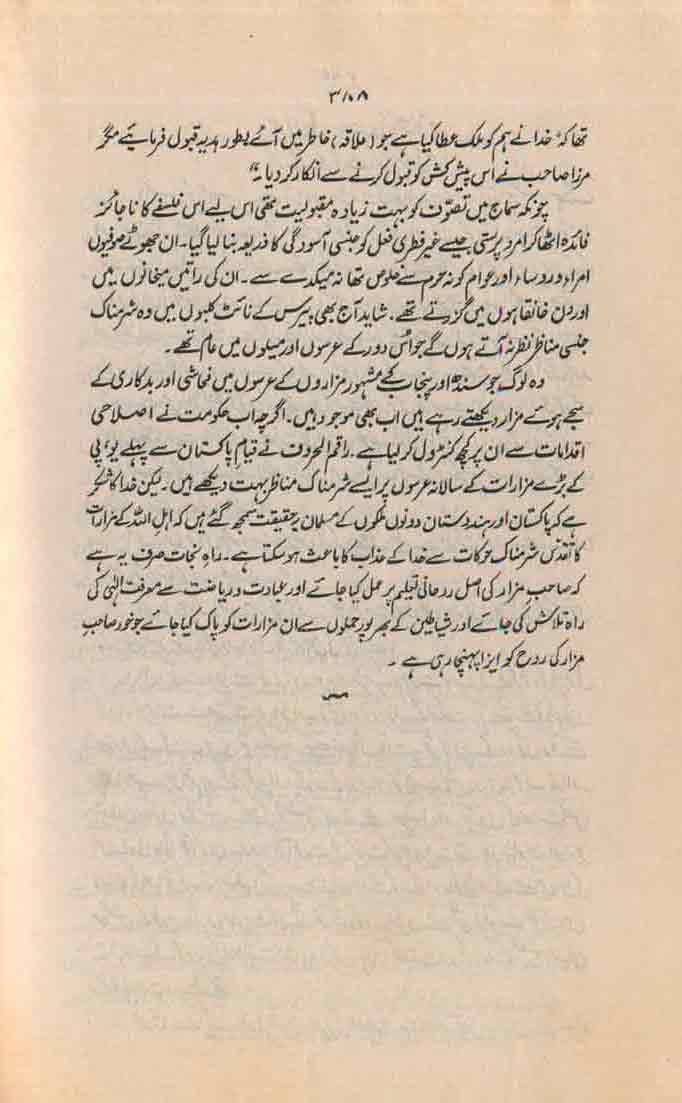 ۳۸۸
تھا کہ "خدا نے ہم کو ملک عطا کیا ہے جو (علاقہ) خاطر میں آئے بطور ہدیہ قبول فرمائیے مگر
مرزا صاحب نے اس پیش کش کو قبول کرنے سے انکار کر دیا۔"
چونکہ سماج میں تصوّف کو بہت زیادہ مقبولیت تھی اس لیے اس فلسفے کا ناجائز
فائدہ اٹھا کر امرد پرستی جیسے غیر فطری فعل کو جنسی آسودگی کا ذریعہ بنا لیا گیا۔ ان جھوٹے صوفیوں
امراء و روساء اور عوام کو نہ حرم سے خلوص تھا نہ میکدے سے۔ ان کی راتیں میخانوں میں
اور دن خانقاہوں میں گزرتے تھے۔ شاید آج بھی پیرس کے نائٹ کلبوں میں وہ شرمناک
جنسی مناظر نظر نہ آتے ہوں گے جو اس دور کے عرسوں اور میلوں میں عام تھے۔
وہ لوگ جو سندھ اور پنجاب کے مشہور مزاروں کے عرسوں میں فحاشی اور بدکاری کے
سجے ہوئے مزار دیکھتے رہے ہیں اب بھی موجود ہیں۔ اگرچہ اب حکومت نے اصلاحی
اقدامات سے ان پر کچھ کنٹرول کر لیا ہے۔ راقم الحروف نے قیام پاکستان سے پہلے یو، پی
کے بڑے مزارات کے سالانہ عرسوں پر ایسے شرمناک مناظر بہت دیکھے ہیں۔ لیکن خدا کا شکر
ہے کہ پاکستان اور ہندوستان دونوں ملکوں کے مسلمان یہ حقیقت سمجھ گئے ہیں کہ اہل اللہ کے مزارات
کا تقدّس شرمناک حرکات سے خدا کے عذاب کا باعث ہو سکتا ہے۔ راہِ نجات صرف یہ ہے
کہ صاحبِ مزار کی اصل روحانی تعلیم پر عمل کیا جائے اور عبادت و ریاضت سے معرفت الٰہی کی
راہ تلاش کی جائے اور شیاطین کے بھرپور حملوں سے ان مزارات کو پاک کیا جائے جو خود صاحبِ
مزار کی روح کو ایزا پہنچا رہی ہے۔